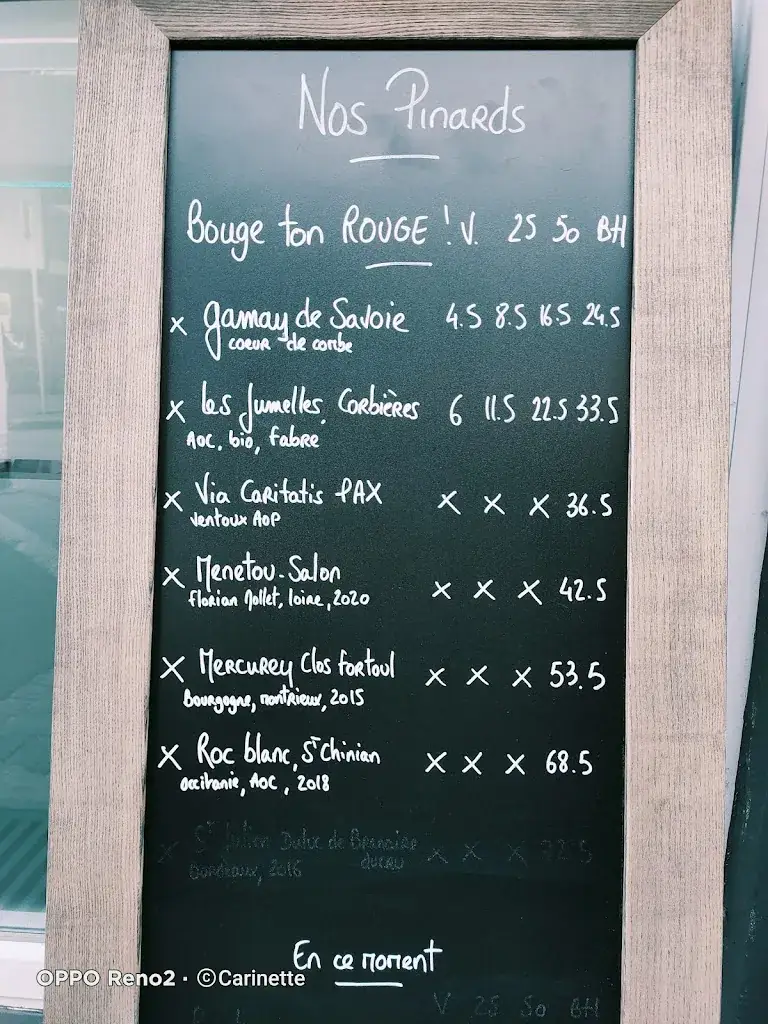 Nos Pinards
Bouge ton ROUGE ! V. 25 50 BTL
x Gamay de Savoie 4.5 8.5 16.5 24.5
coeur de combe
x Les Jumelles, Corbières 6 11.5 22.5 33.5
AOC, bio, Fabre
x Via Caritatis PAX x x x 36.5
Ventoux AOP
x Menetou-Salon x x x 42.5
Florian Mollet, loire, 2020
x Mercurey Clos Fortoul x x x 53.5
Bourgogne, montrieux, 2015
x Roc blanc, St Chinian x x x 68.5
Occitanie, AOC, 2018
x St Julien Duluc de Branaire x x x 72.5
Bordeaux, 2016 ducru
En ce moment
V 25 50 BTL
OPPO Reno2 · ©Carinette